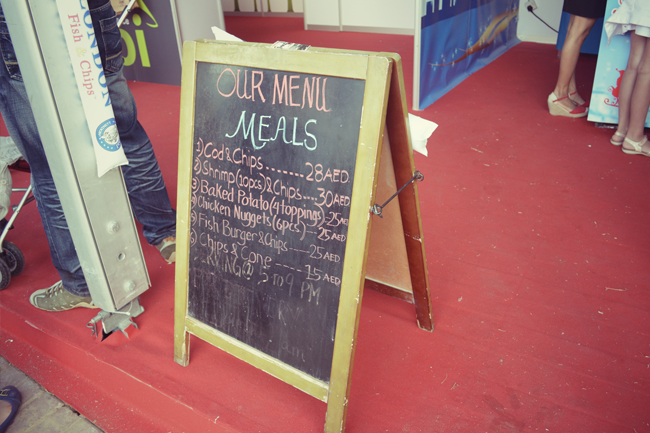 LONDON
Fish Chips
bi
OUR MENU
MEALS
1) Cod & Chips ........ 28 AED
2) Shrimp (10pcs) & Chips ... 30 AED
3) Baked Potato (4 toppings) - 25 AED
4) Chicken Nuggets (6pcs) - 25 AED
5) Fish Burger & Chips ---- 25 AED
6) Chips & Cone ---- 15 AED
PM